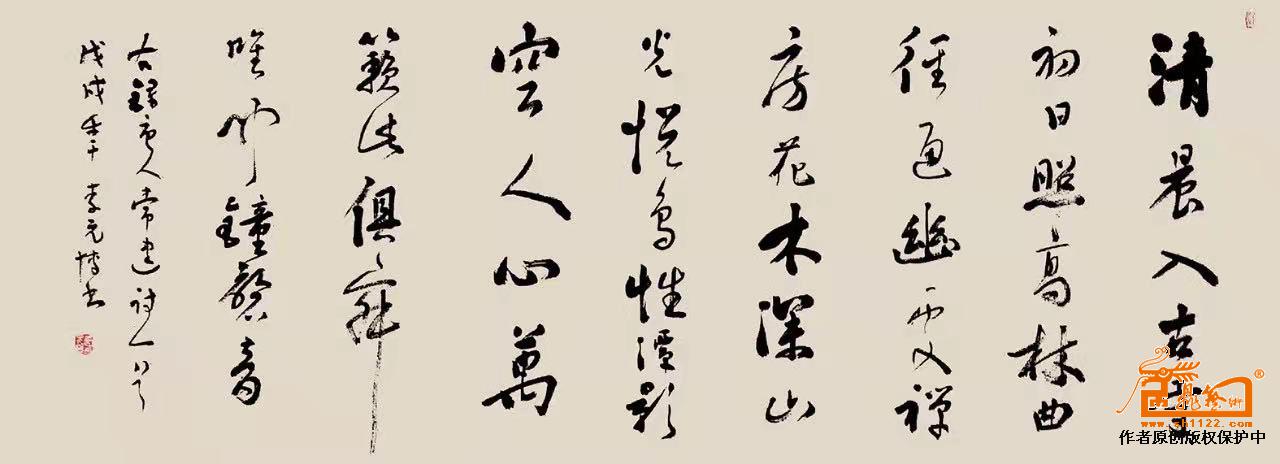 清晨入古寺
初日照高林曲
径通幽處禅
房花木深山
光悦鸟性潭影
空人心萬
籁此俱寂
唯闻鐘磬音
右録唐人常建诗一首
戊戌年 李元博书
藝術
www.sh1122.com
作者原创版权保护中